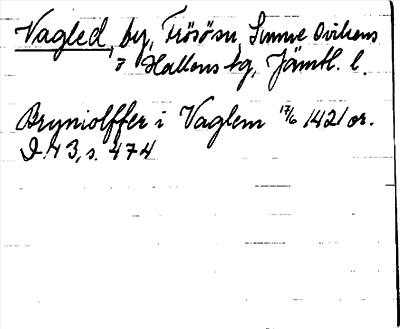 Vagled, by, Frösön, Sunne Ovikens
7 Hallens tg, Jämtl. l.
Bryniolffer i Vaglem 17/6 1421 or.
D 43, s. 474